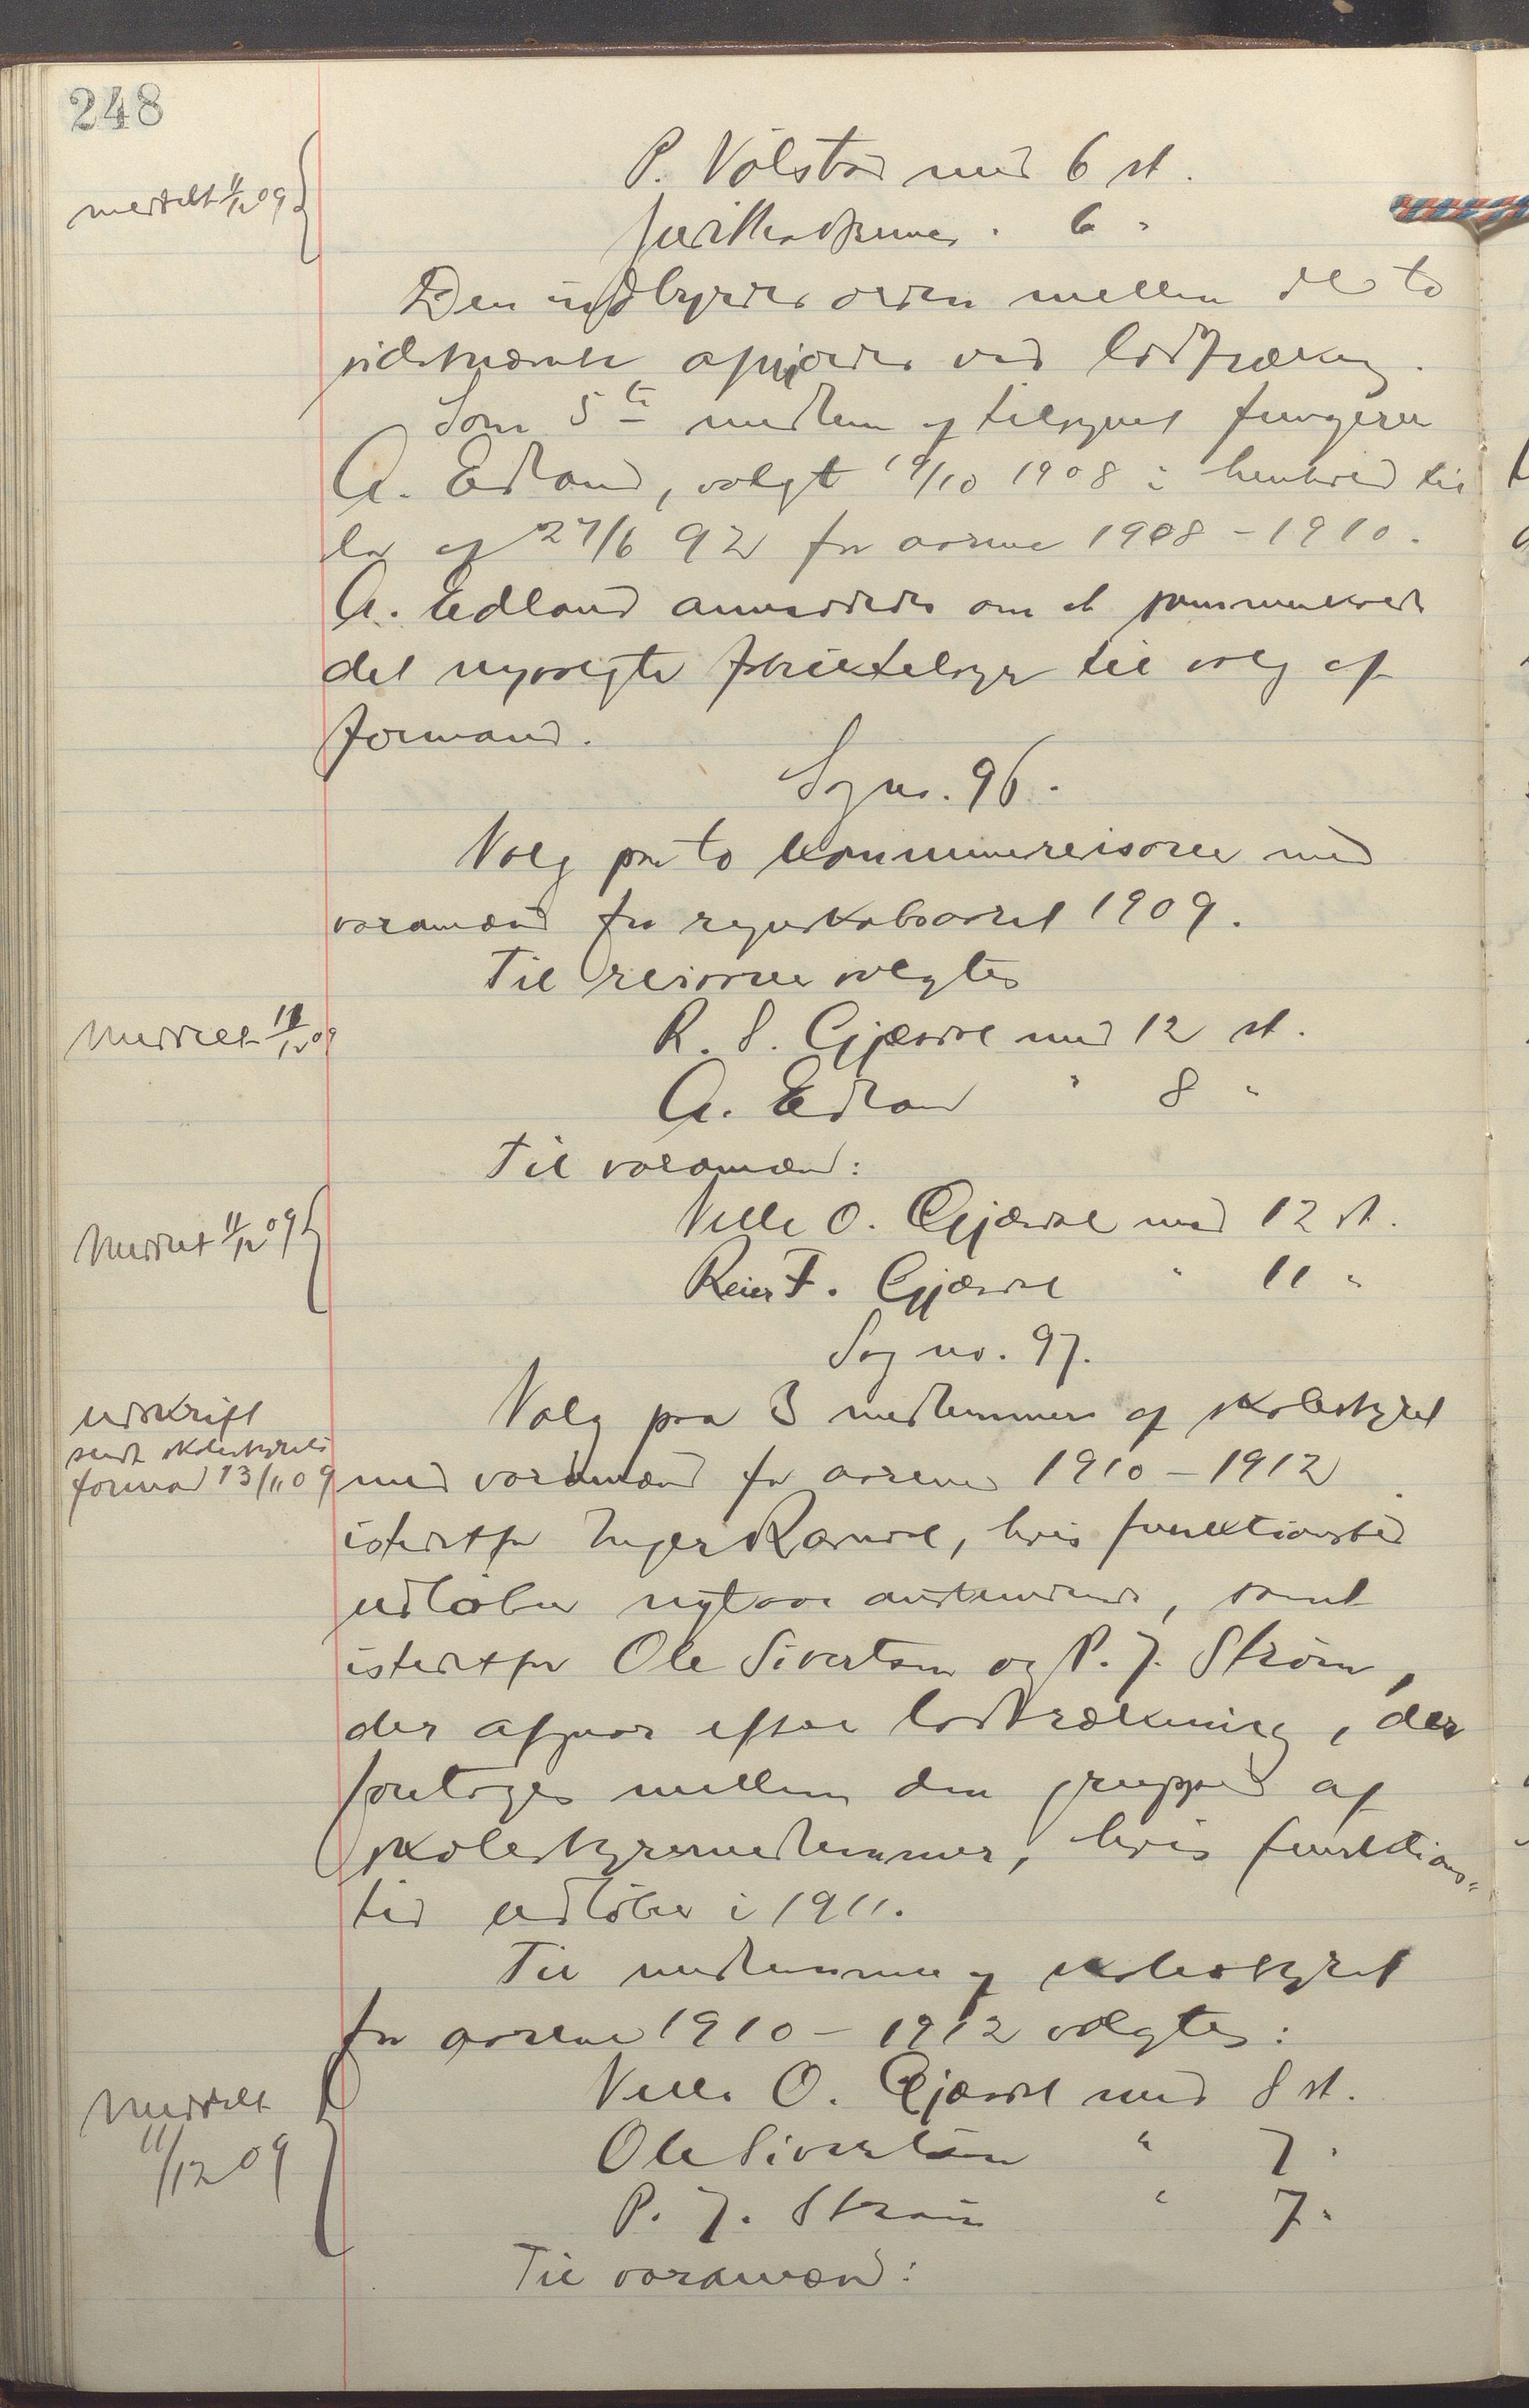 248
meddelt 11/12 09
P. Vølstad med 6 st.
" 6 "
Den indbyrdes orden mellem de to
sidstnævnte afgjordes ved lodtrækning.
Som 5te medlem af tilsynet fungerer
A. Edland, valgt 19/10 1908 i henhold til
lov af 27/6 92 for aarene 1908-1910.
A. Edland anmodedes om at sammenkalde
det nyvalgte tilsyn til valg af
formand.
Sag no. 96.
Valg paa to kommunerevisorer med
varamænd for regnskabsaaret 1909.
Til revisorer valgtes
Meddelt 11/12 09
R. S. Gjærdal med 12 st.
A. Edland " 8 "
Til varamænd:
Meddelt 11/12 09
Nille O. Gjærdal med 12 st.
Reier F. Gjærdal " 11 "
Sag no. 97.
udskrift
sendt skolestyrets
formand 13/11 09
Valg paa 3 medlemmer af skolestyret
med varamænd for aarene 1910-1912
istedetfor Inger Ramdal, hvis funktionstid
udløber nytaar førstkommende, samt
istedetfor Ole Sivertsen og P. J. Strøm,
der afgaar efter lodtrækning, der
foretoges mellem den gruppe af
skolestyremedlemmer, hvis funktions=
tid udløber i 1911.
Til medlemmer af skolestyret
for aarene 1910-1912 valgtes:
Meddelt
11/12 09
Nille O. Gjærdal med 8 st.
Ole Sivertsen " 7 "
P. J. Strøm " 7 "
Til varamænd: